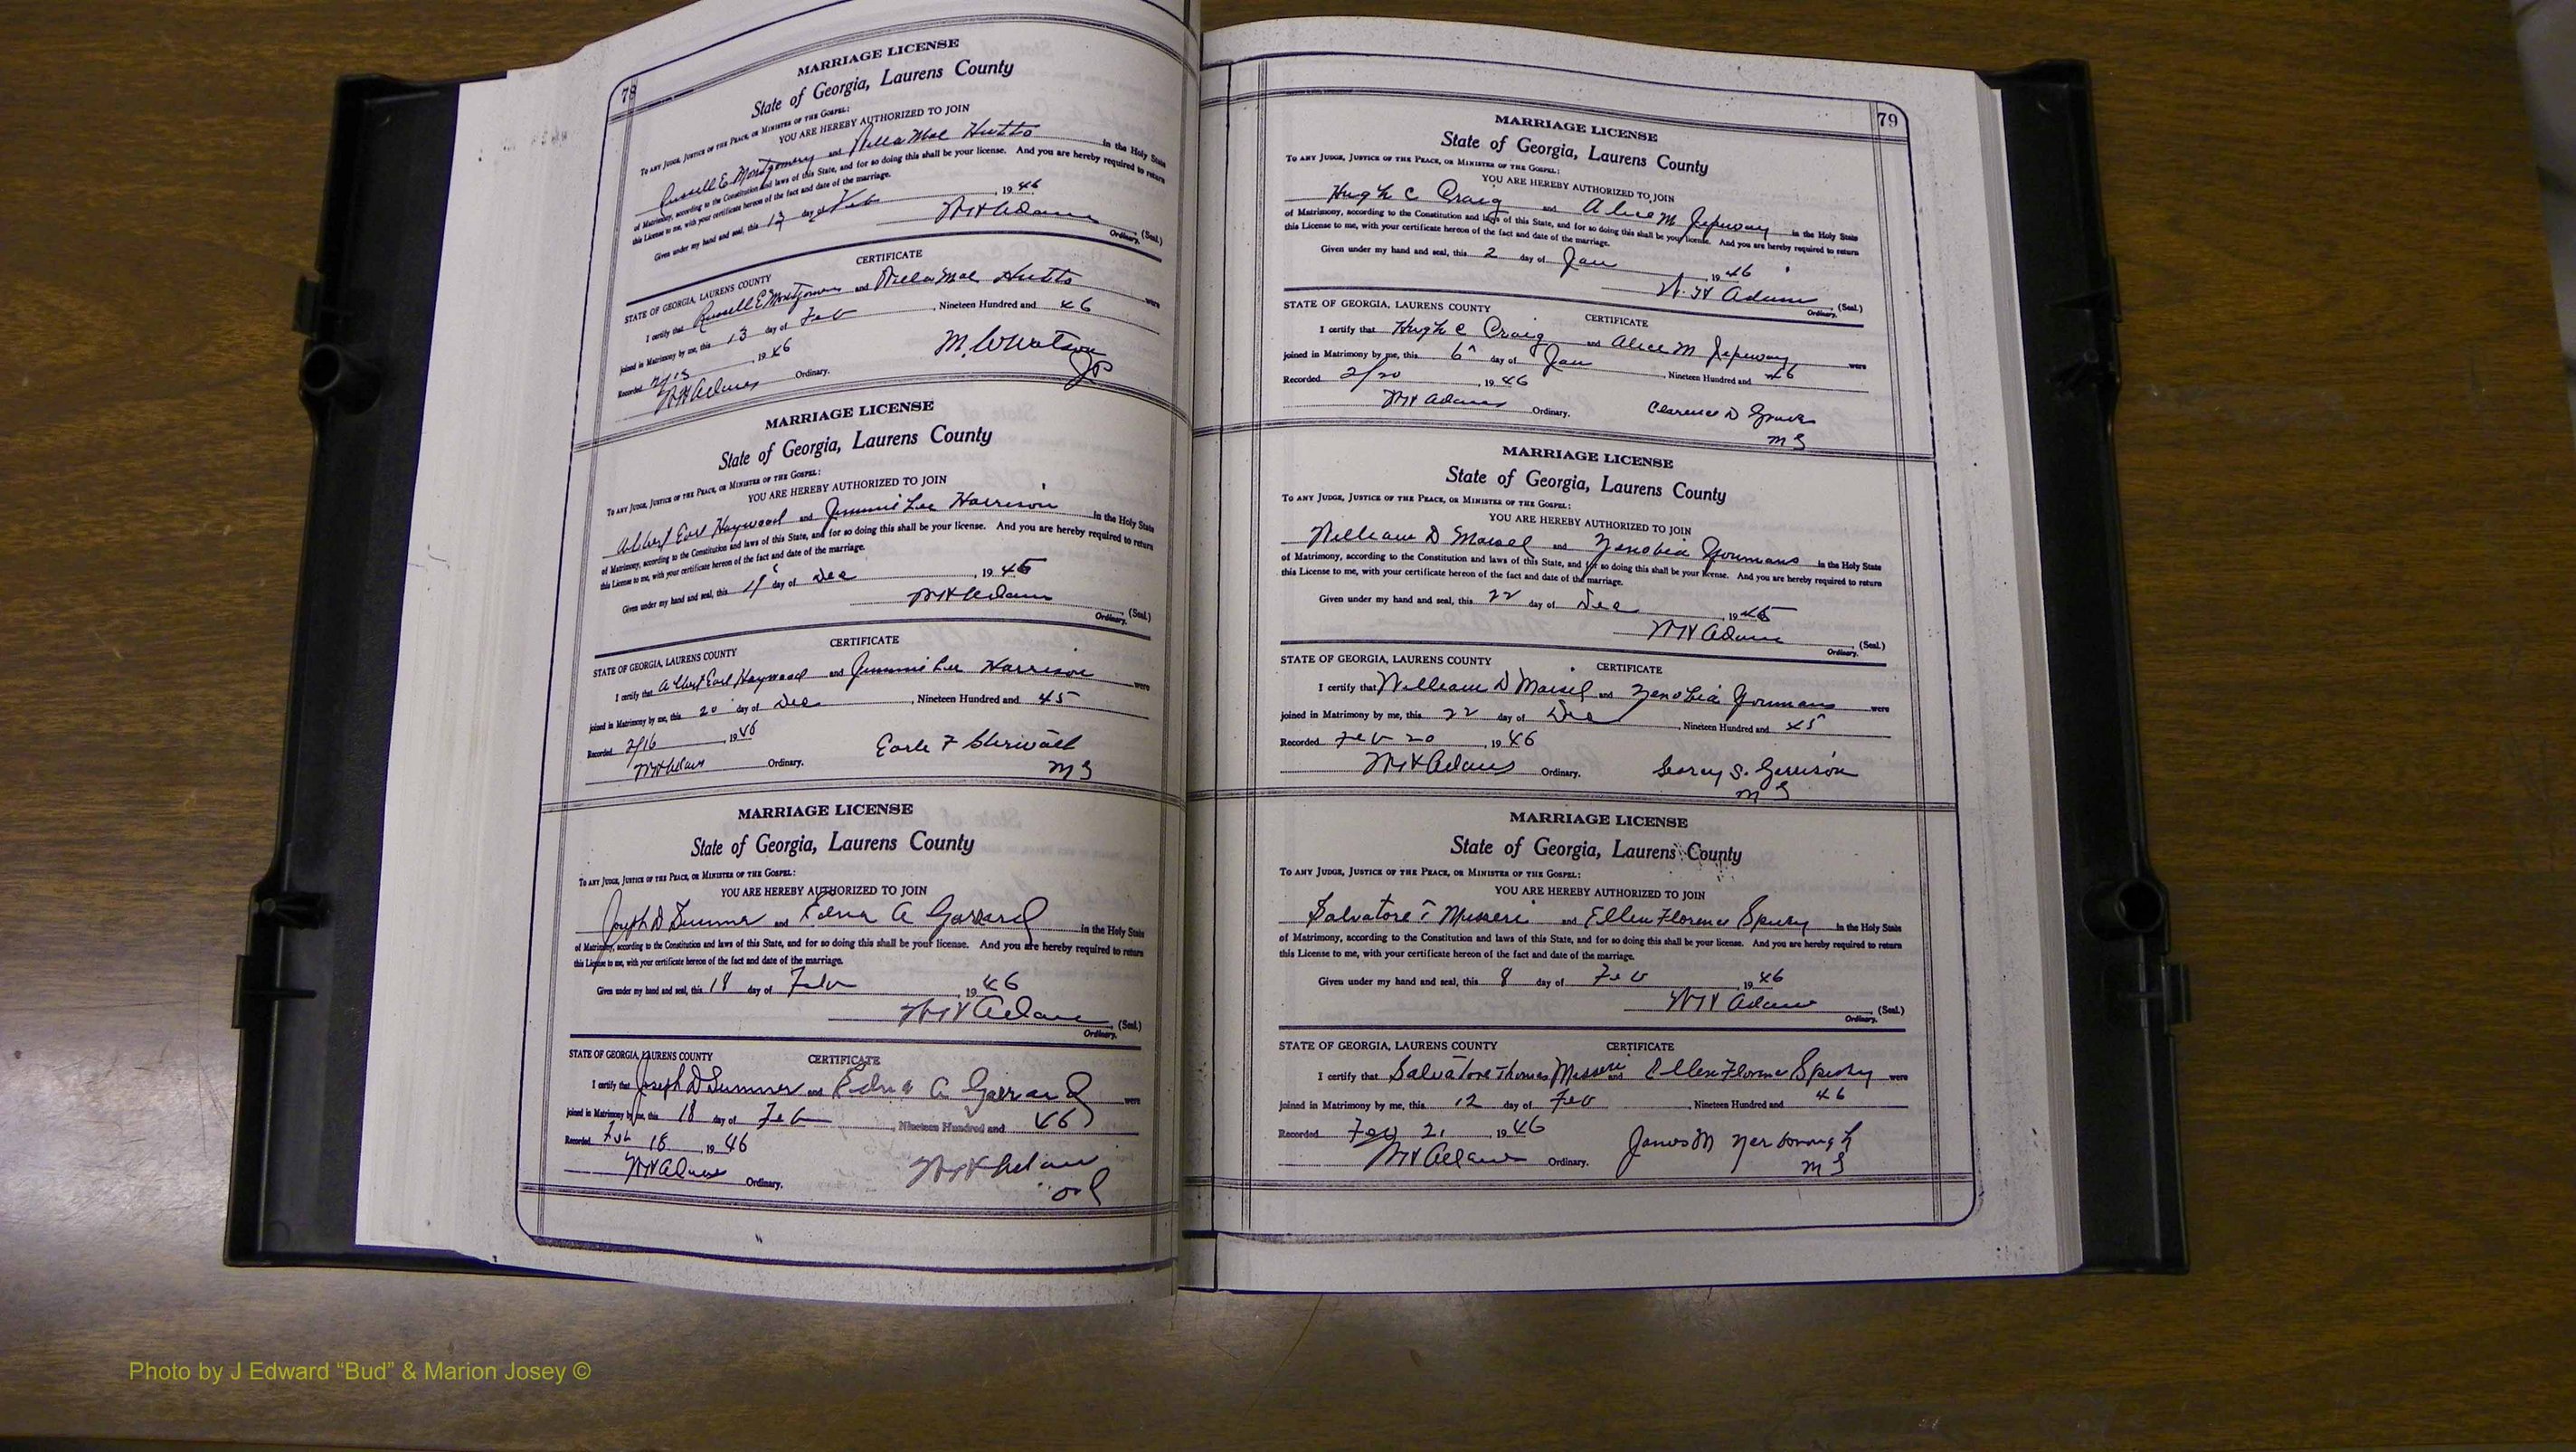 78
MARRIAGE LICENSE
State of Georgia, Laurens County
TO ANY JUDGE, JUSTICE OF THE PEACE, OR MINISTER OF THE GOSPEL:
YOU ARE HEREBY AUTHORIZED TO JOIN
Russell E. Montgomery and Willa Mae Hutto in the Holy State
of Matrimony, according to the Constitution and laws of this State, and for so doing this shall be your license. And you are hereby required to return
this License to me, with your certificate hereon of the fact and date of the marriage.
Given under my hand and seal, this 13 day of Feb, 1946
WH Adams (Seal.)
Ordinary.
CERTIFICATE
STATE OF GEORGIA, LAURENS COUNTY
I certify that Russell E Montgomery and Willa Mae Hutto were
joined in Matrimony by me, this 13 day of Feb, Nineteen Hundred and 46
Recorded 2/13, 1946
WH Adams Ordinary.
M. W Watson
JP
MARRIAGE LICENSE
State of Georgia, Laurens County
TO ANY JUDGE, JUSTICE OF THE PEACE, OR MINISTER OF THE GOSPEL:
YOU ARE HEREBY AUTHORIZED TO JOIN
Albert Earl Haywood and Jimmie Lee Harrison in the Holy State
of Matrimony, according to the Constitution and laws of this State, and for so doing this shall be your license. And you are hereby required to return
this License to me, with your certificate hereon of the fact and date of the marriage.
Given under my hand and seal, this 19 day of Dec, 1945
WH Adams (Seal.)
Ordinary.
CERTIFICATE
STATE OF GEORGIA, LAURENS COUNTY
I certify that Albert Earl Haywood and Jimmie Lee Harrison were
joined in Matrimony by me, this 20 day of Dec, Nineteen Hundred and 45
Recorded 2/16, 1946
WH Adams Ordinary.
Earle F
MG
MARRIAGE LICENSE
State of Georgia, Laurens County
TO ANY JUDGE, JUSTICE OF THE PEACE, OR MINISTER OF THE GOSPEL:
YOU ARE HEREBY AUTHORIZED TO JOIN
Joseph D Sumner and Edna A Garrard in the Holy State
of Matrimony, according to the Constitution and laws of this State, and for so doing this shall be your license. And you are hereby required to return
this License to me, with your certificate hereon of the fact and date of the marriage.
Given under my hand and seal, this 18 day of Feb, 1946
WH Adams (Seal.)
Ordinary.
STATE OF GEORGIA, LAURENS COUNTY CERTIFICATE
I certify that Joseph D Sumner and Edna A Garrard were
joined in Matrimony by me, this 18 day of Feb, Nineteen Hundred and 46
Recorded Feb 18, 1946
WH Adams Ordinary.
WH Adams
Ord
79
MARRIAGE LICENSE
State of Georgia, Laurens County
TO ANY JUDGE, JUSTICE OF THE PEACE, OR MINISTER OF THE GOSPEL:
YOU ARE HEREBY AUTHORIZED TO JOIN
Hugh C Craig and Alice M Jepeway in the Holy State
of Matrimony, according to the Constitution and laws of this State, and for so doing this shall be your license. And you are hereby required to return
this License to me, with your certificate hereon of the fact and date of the marriage.
Given under my hand and seal, this 2 day of Jan, 1946
W. H Adams (Seal.)
Ordinary.
STATE OF GEORGIA, LAURENS COUNTY CERTIFICATE
I certify that Hugh C Craig and Alice M Jepeway were
joined in Matrimony by me, this 6 day of Jan, Nineteen Hundred and 46
Recorded 2/20, 1946
WH Adams Ordinary.
Clarence D Graves
MG
MARRIAGE LICENSE
State of Georgia, Laurens County
TO ANY JUDGE, JUSTICE OF THE PEACE, OR MINISTER OF THE GOSPEL:
YOU ARE HEREBY AUTHORIZED TO JOIN
William D Maisel and Zenobia Youmans in the Holy State
of Matrimony, according to the Constitution and laws of this State, and for so doing this shall be your license. And you are hereby required to return
this License to me, with your certificate hereon of the fact and date of the marriage.
Given under my hand and seal, this 22 day of Dec, 1945
WH Adams (Seal.)
Ordinary.
STATE OF GEORGIA, LAURENS COUNTY CERTIFICATE
I certify that William D Maisel and Zenobia Youmans were
joined in Matrimony by me, this 22 day of Dec, Nineteen Hundred and 45
Recorded Feb 20, 1946
WH Adams Ordinary.
S. Garrison
MG
MARRIAGE LICENSE
State of Georgia, Laurens County
TO ANY JUDGE, JUSTICE OF THE PEACE, OR MINISTER OF THE GOSPEL:
YOU ARE HEREBY AUTHORIZED TO JOIN
Salvatore T Misseri and Ellen Florence in the Holy State
of Matrimony, according to the Constitution and laws of this State, and for so doing this shall be your license. And you are hereby required to return
this License to me, with your certificate hereon of the fact and date of the marriage.
Given under my hand and seal, this 8 day of Feb, 1946
WH Adams (Seal.)
Ordinary.
STATE OF GEORGIA, LAURENS COUNTY CERTIFICATE
I certify that Salvatore Thomas Misseri and Ellen Florence were
joined in Matrimony by me, this 12 day of Feb, Nineteen Hundred and 46
Recorded Feb 21, 1946
WH Adams Ordinary.
James M Yarborough
MG
Photo by J Edward “Bud” & Marion Josey ©